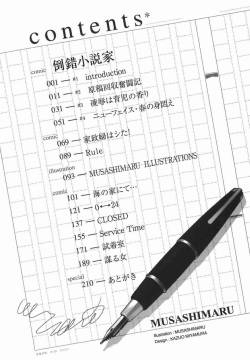 contents*
comic
倒錯小説家
001 — #1 introduction
011 — #2 原稿回収奮闘記
031 — #3 凌辱は育児の香り
051 — #4 ニューフェイス・春の身悶え
comic
069 — 家政婦はシた!
089 — Rule
illustration
093 — MUSASHIMARU ILLUSTRATIONS
comic
101 — 海の家にて…
121 — 0⟷24
137 — CLOSED
155 — Service Time
171 — 試着室
189 — 謀る女
special
210 — あとがき
MUSASHIMARU
Illustration : MUSASHIMARU
Design : KAZUO MIYAMURA